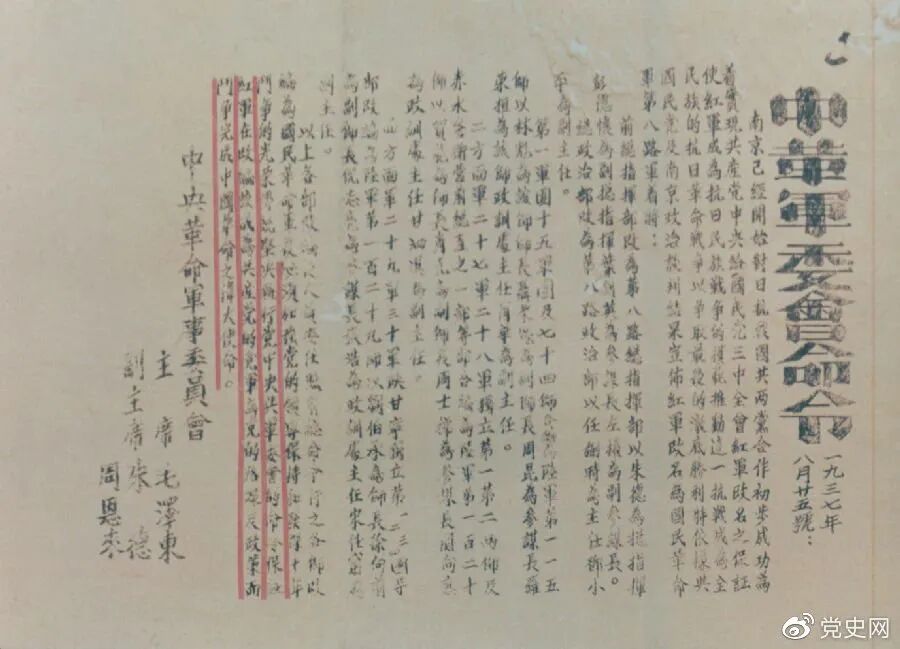 中華軍委會命令
一九三七年
八月廿五號：
南京已經開始對日抗戰國共兩黨合作初步成功為
着實現共產黨中央給國民党三中全會紅軍改名之保証
使紅軍成為抗日民族戰爭的模範推動這一抗戰成為全
民族的抗日革命戰爭以争取最後的澈底勝利特依據與
國民党及南京政治談判結果宣佈紅軍改名為國民革命
軍第八路軍着將：
前總指揮部改為第八路總指揮部以朱德為總指揮
彭德懷為副總指揮葉劍英為參謀長左權為副參謀長。
總政治部改為第八路政治部以任弼時為主任鄧小
平為副主任。
第一軍團十五軍團及七十四師合編為陸軍第一一五
師以林彪為該師師長聶榮臻為副師長周昆為參謀長羅
榮桓為該師政訓處主任蕭華為副主任。
二方面軍二十七軍二十八軍獨立第一第二兩師及
赤水警衛營前總直之一部等部合編為陸軍第一百二十
師以賀龍為師長蕭克為副師長周士第為參謀長關向應
為政訓處主任甘泗淇為副主任。
四方面軍二十九軍三十軍陝甘寧獨立第一二三四等
師改編為陸軍第一百二十九師以劉伯承為師長徐向前
為副師長倪志亮為參謀長張浩為政訓處主任宋任窮為
副主任。
以上各部改編後人員委任照前總命令行之各部改
編為國民革命軍後必須加強党的領導保持和發揮十年
鬥爭的光榮傳統堅決執行党中央與軍委會的命令保証
紅軍在改編後成為共產党的党軍為党的路線及政策而
鬥争完成中國革命之偉大使命。
中央革命軍事委員會
主席毛澤東
副主席朱德
周恩來
党史网